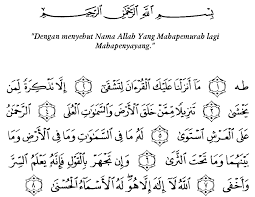 بِسْمِ اللَّهِ الرَّحْمَٰنِ الرَّحِيمِ
"Dengan menyebut Nama Allah Yang Mahapemurah lagi
Mahapenyayang."
طه ۝١ مَا أَنزَلْنَا عَلَيْكَ الْقُرْءَانَ لِتَشْقَىٰ ۝٢ إِلَّا تَذْكِرَةً لِّمَن
يَخْشَىٰ ۝٣ تَنزِيلًا مِّمَّنْ خَلَقَ الْأَرْضَ وَالسَّمَٰوَٰتِ الْعُلَى ۝٤ الرَّحْمَٰنُ
عَلَى الْعَرْشِ اسْتَوَىٰ ۝٥ لَهُ مَا فِي السَّمَٰوَٰتِ وَمَا فِي الْأَرْضِ وَمَا
بَيْنَهُمَا وَمَا تَحْتَ الثَّرَىٰ ۝٦ وَإِن تَجْهَرْ بِالْقَوْلِ فَإِنَّهُ يَعْلَمُ السِّرَّ
وَأَخْفَى ۝٧ اللَّهُ لَا إِلَٰهَ إِلَّا هُوَ لَهُ الْأَسْمَاءُ الْحُسْنَىٰ ۝٨